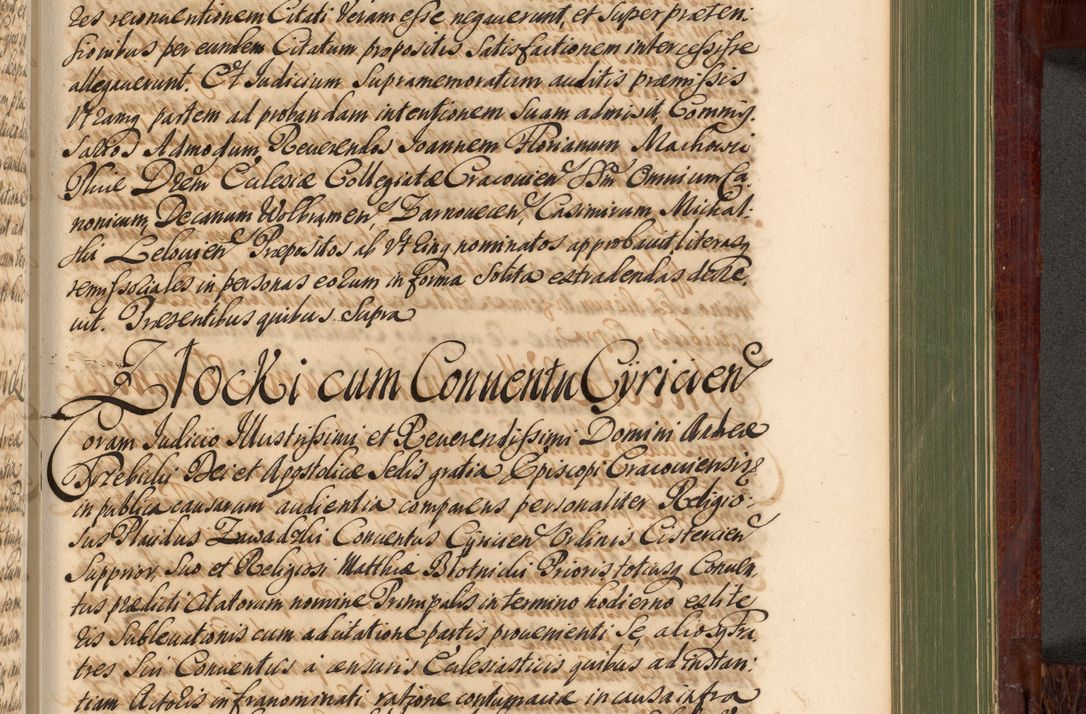 des reconventionem Citati veram esse negaverunt, et super præten-
sionibus per eundem Citatum propositis Satisfactionem intercessisse
allegaverunt. Et Iudicium Supramemoratum auditis præmissis
Vtramq partem ad probandam intentionem Suam admisit, Commis.
sarios Admodum Reverendos Ioannem Florianum Machowic
Phiæ Drem Ecclesiæ Collegiatæ Cracovien SSm Omnium Ca-
nonicum, Decanum Wolbramen, Zarnovecen, Casimirum Michal-
ski Lelovien Præpositos ab Vtrinq nominatos approbavit literasq
remissoriales in personas eorum in forma Solita extradendas decre-
vit. Præsentibus quibus Supra
Zlocki cum Conventu Cyricien
Coram Iudicio Illustrissimi et Reverendissimi Domini Andreæ
Trzebicki Dei et Apostolicæ Sedis gratia Episcopi Cracoviensis
in publica causarum audientia comparens personaliter Religio-
sus Placidus Zawadzki Conventus Cyricien Ordinis Cistercien
Supprior, Suo et Religiosi Matthiæ Blotnicki Prioris totiusq Conven-
tus prædicti Citatorum nomine Principalis in termino hodierno ex lite-
ris Sublevationis cum ad citatione partis provenienti Se, aliosq fra
tres Sui Conventus à censuris Ecclesiasticis quibus ad instan-
tiam Actoris infranominati ratione contumaciæ in causa infra